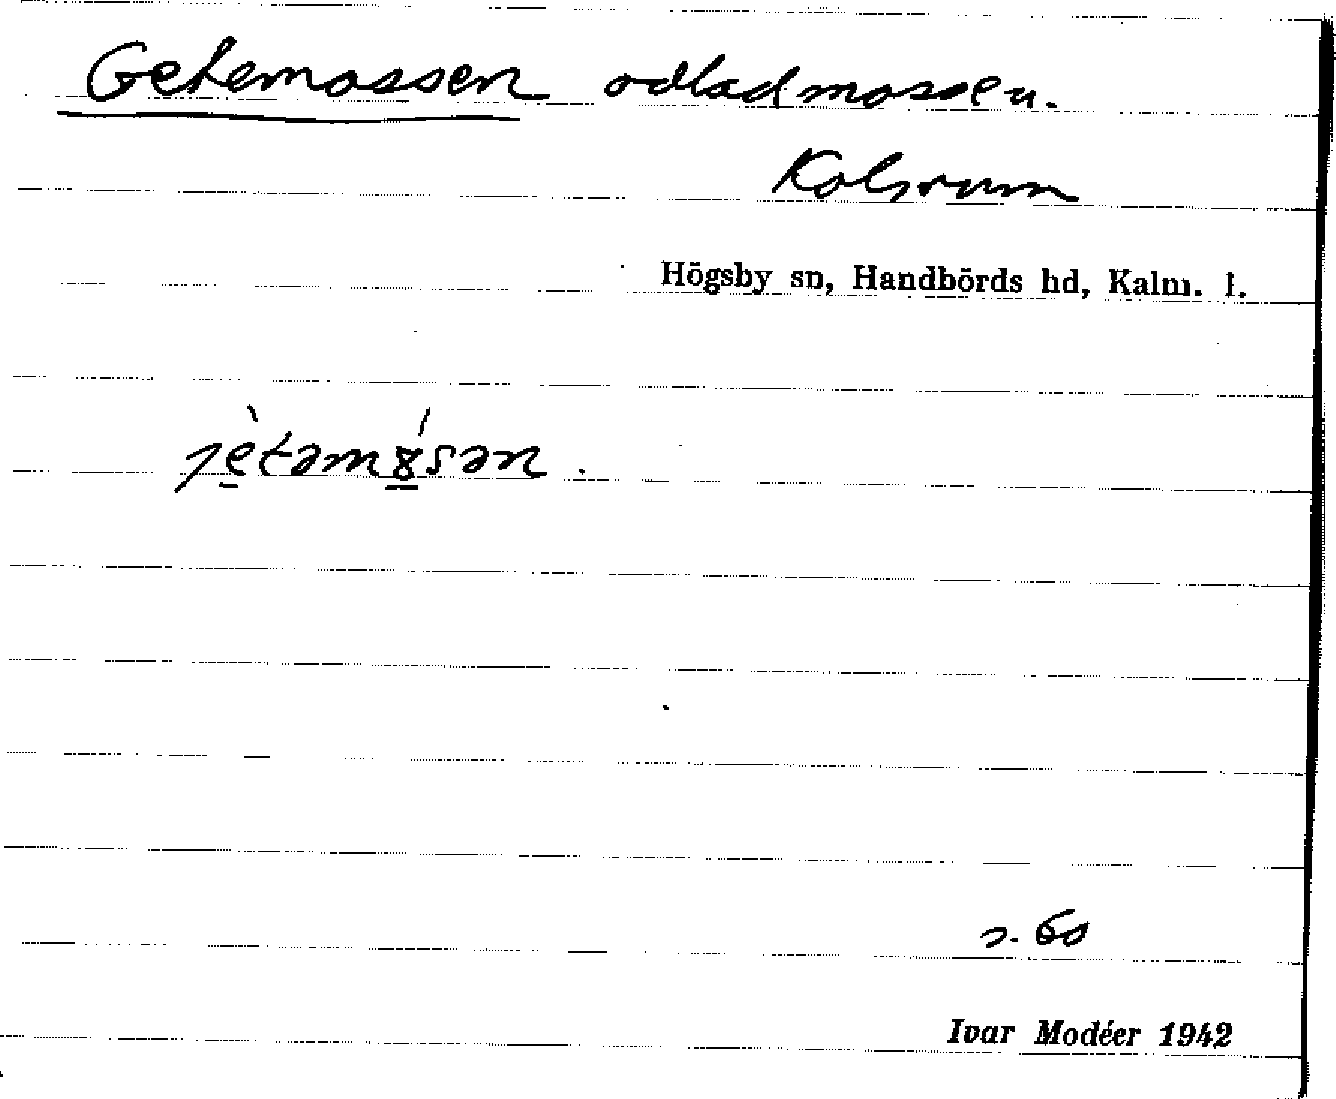 Getemossen odlad mossen.
Kolsrum
Högsby sn, Handbörds hd, Kalm. l.
s. 60
Ivar Modéer 1942